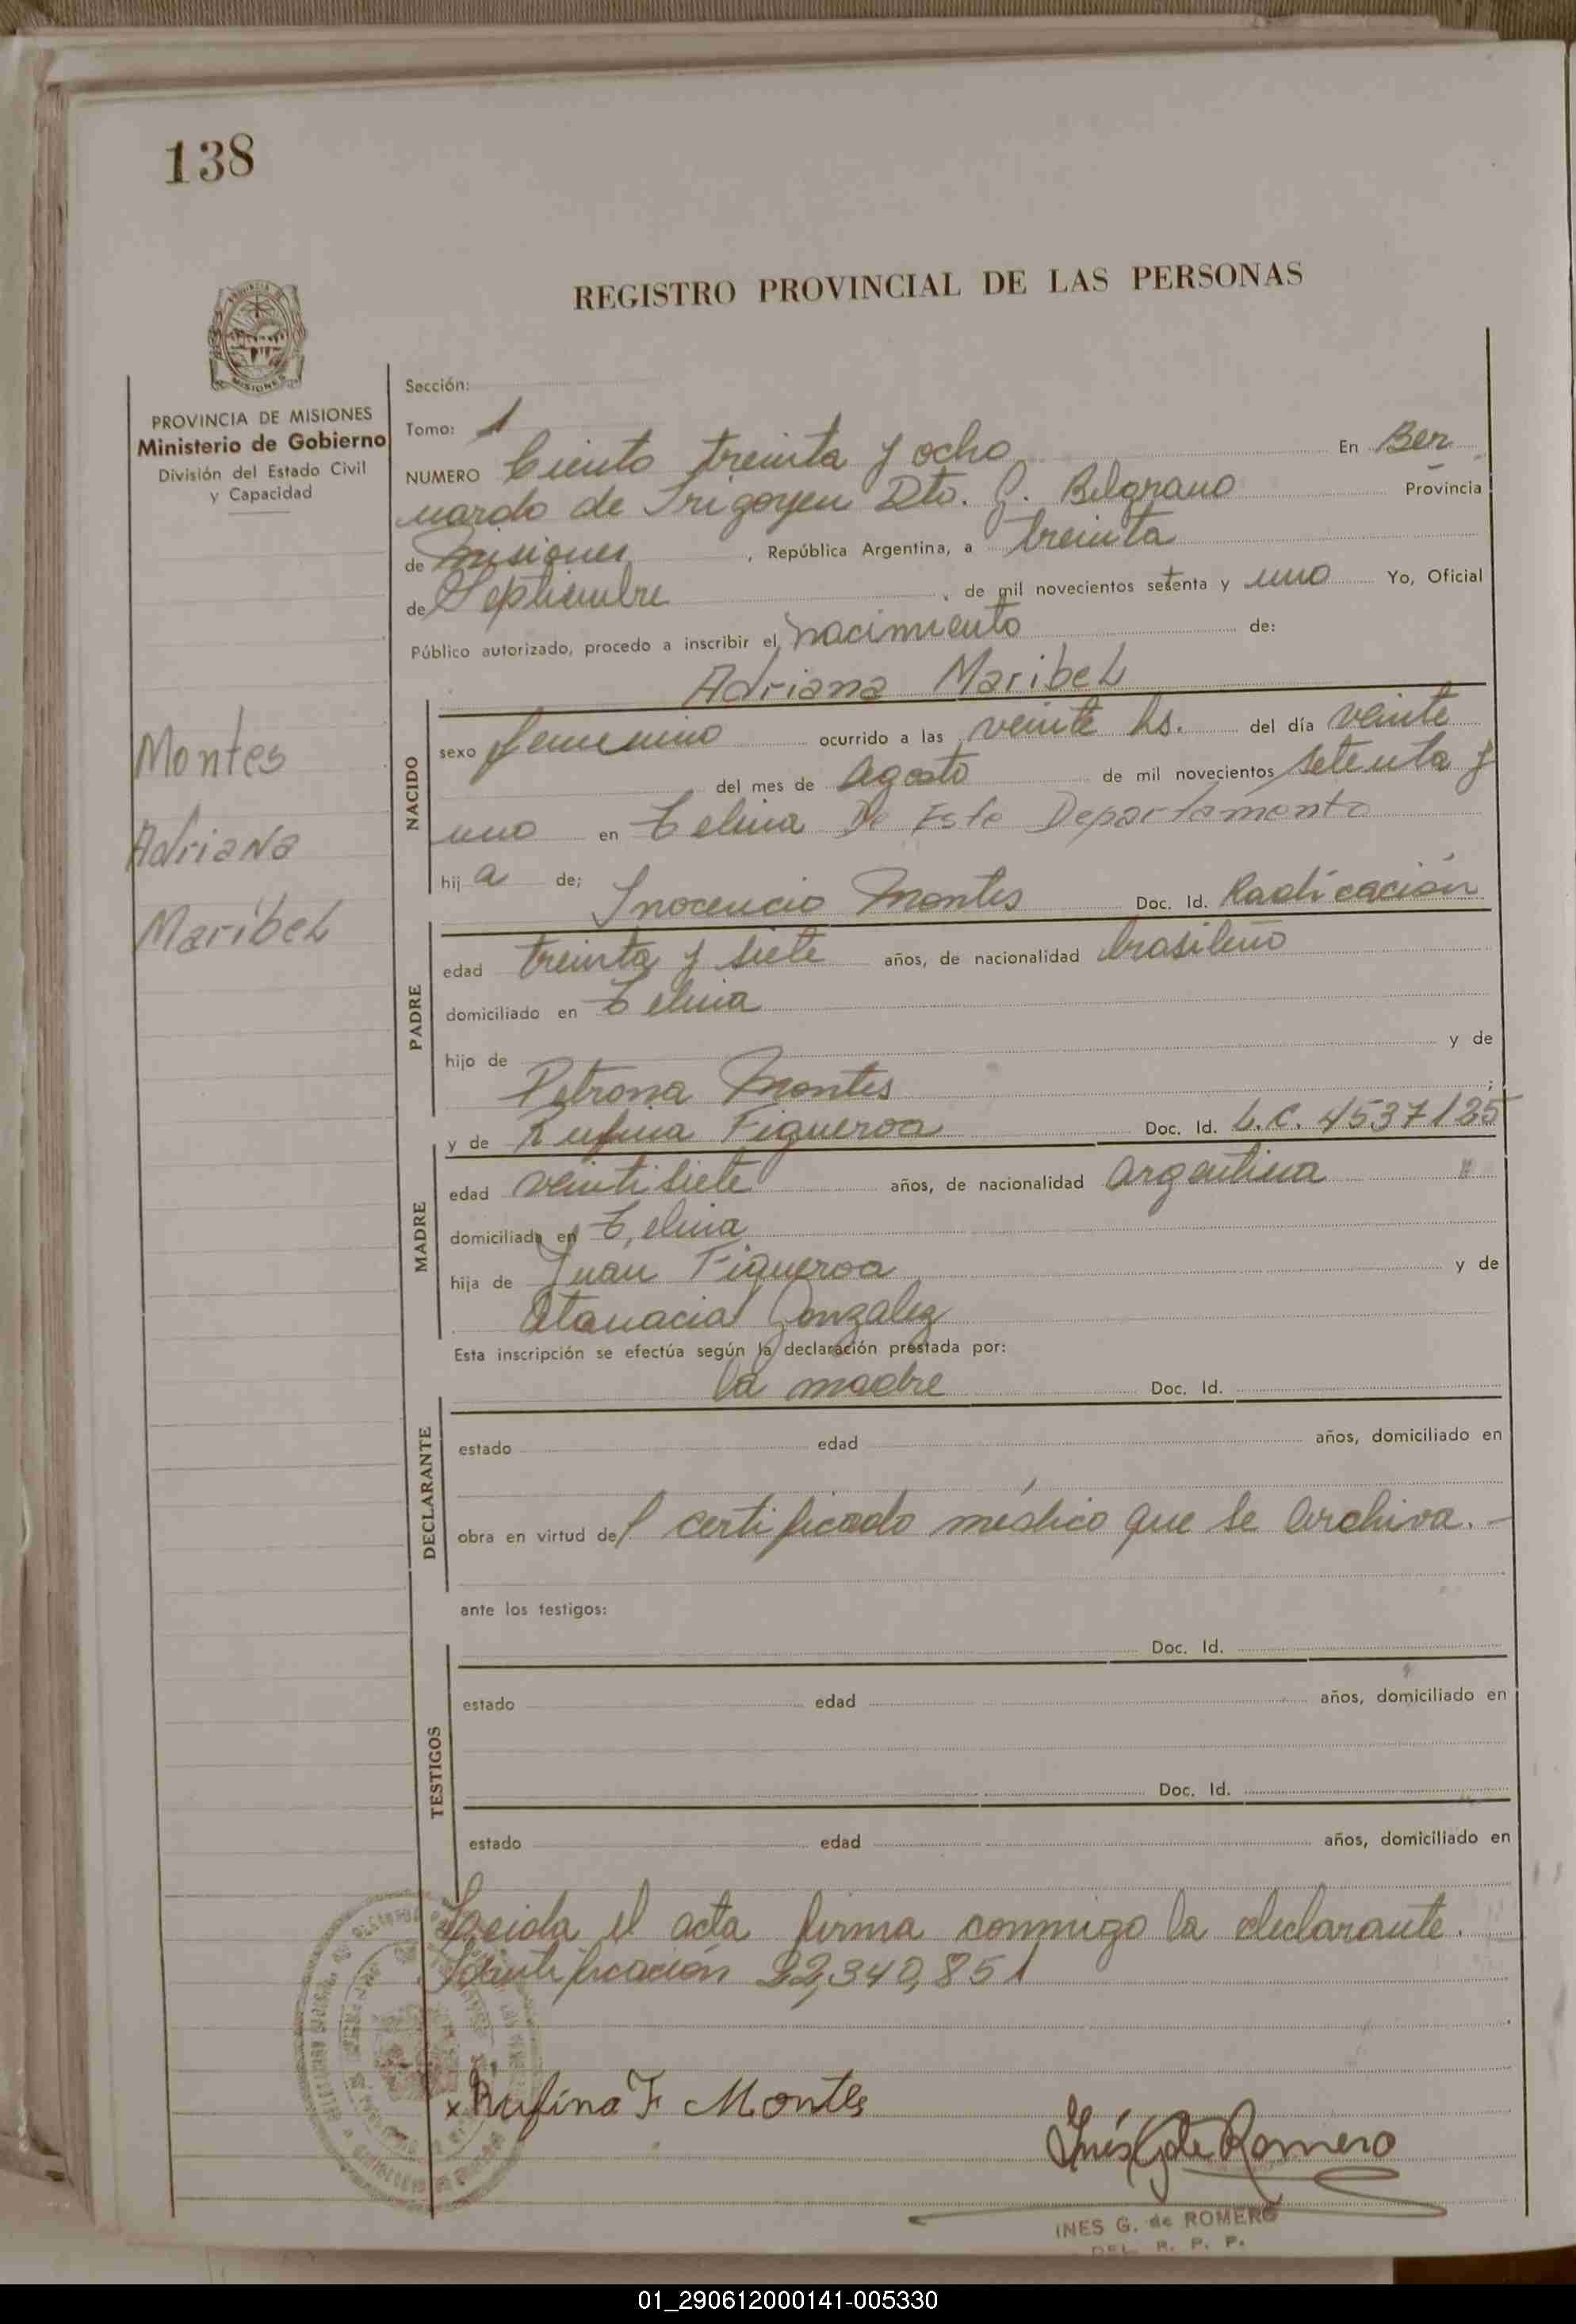 138
REGISTRO PROVINCIAL DE LAS PERSONAS
MISIONES
PROVINCIA DE MISIONES
Ministerio de Gobierno
División del Estado Civil
y Capacidad
Montes
Adriana
Maribel
Sección:
Tomo: 1
NUMERO Ciento treinta y ocho En Ber
nardo de Irigoyen Dto. G. Belgrano Provincia
de Misiones, República Argentina, a treinta
de Septiembre, de mil novecientos setenta y uno Yo, Oficial
Público autorizado, procedo a inscribir el nacimiento de:
Adriana Maribel
NACIDO
sexo femenino ocurrido a las veinte hs. del día veinte
del mes de Agosto de mil novecientos setenta y
uno en De Este Departamento
hij a de; Inocencio Montes Doc. Id. Radicación
PADRE
edad treinta y siete años, de nacionalidad brasileño
domiciliado en
hijo de y de
Petrona Montes ;
y de Rufina Figueroa Doc. Id. L.C. 4537125
MADRE
edad veintisiete años, de nacionalidad Argentina
domiciliada en
hija de Juan Figueroa y de
Atanacia Gonzalez
Esta inscripción se efectúa según la declaración prestada por:
la madre Doc. Id.
DECLARANTE
estado edad años, domiciliado en
obra en virtud del certificado médico que se archiva.-
ante los testigos:
Doc. Id.
TESTIGOS
estado edad años, domiciliado en
Doc. Id.
estado edad años, domiciliado en
Leida el acta firma conmigo la declarante.
Identificación 22,340,851
x Rufina F Montes
Inés G de Romero
INES G. de ROMERO
DEL R. P. P.
01_290612000141-005330